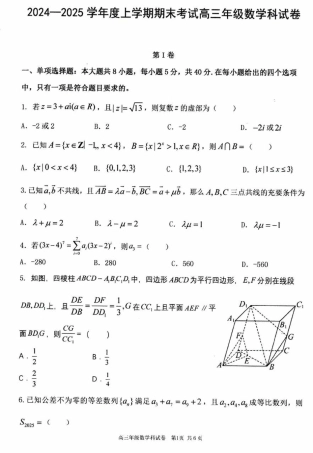 2024—2025 学年度上学期期末考试高三年级数学科试卷
第Ⅰ卷
一、单项选择题：本大题共 8 小题，每小题 5 分，共 40 分.在每小题给出的四个选项
中，只有一项是符合题目要求的。
1. 若 z=3+ai(a∈R)，且|z|=√13，则复数 z 的虚部为（ ）
A. -2 或 2 B. 2 C. -2 D. -2i 或 2i
2. 已知 A={x∈Z| -1, x<4}，B={x|2^x>1,x∈R}，则 A∩B=（ ）
A. {x|0<x<4} B. {0,1,2,3} C. {1,2,3} D. {x|1≤x≤3}
3.已知 a,b 不共线，且 AB=λa-b,BC=a+μb，那么 A,B,C 三点共线的充要条件为
（ ）
A. λ+μ=2 B. λ-μ=2 C. λμ=1 D. λμ=-1
4. 若(3x-4)^7=∑a_i(3x-2)^i，则 a_3=（ ）
A. -280 B. 280 C. 560 D. -560
5. 如图，四棱柱 ABCD-A_1B_1C_1D_1 中，四边形 ABCD 为平行四边形，E,F 分别在线段
DB,DD_1 上，且 DE/DB=DF/DD_1=1/3，G 在 CC_1 上且平面 AEF // 平
面 BD_1G，则 CG/CC_1=（ ）
A. 1/2 B. 1/3
C. 2/3 D. 1/4
D_1 C_1 A_1 B_1 G F C D E A B
6. 已知公差不为零的等差数列{a_n}满足 a_3+a_7=a_9+2，且 a_2,a_4,a_8 成等比数列，则
S_2025=（ ）
高三年级数学科试卷 第1页 共6页